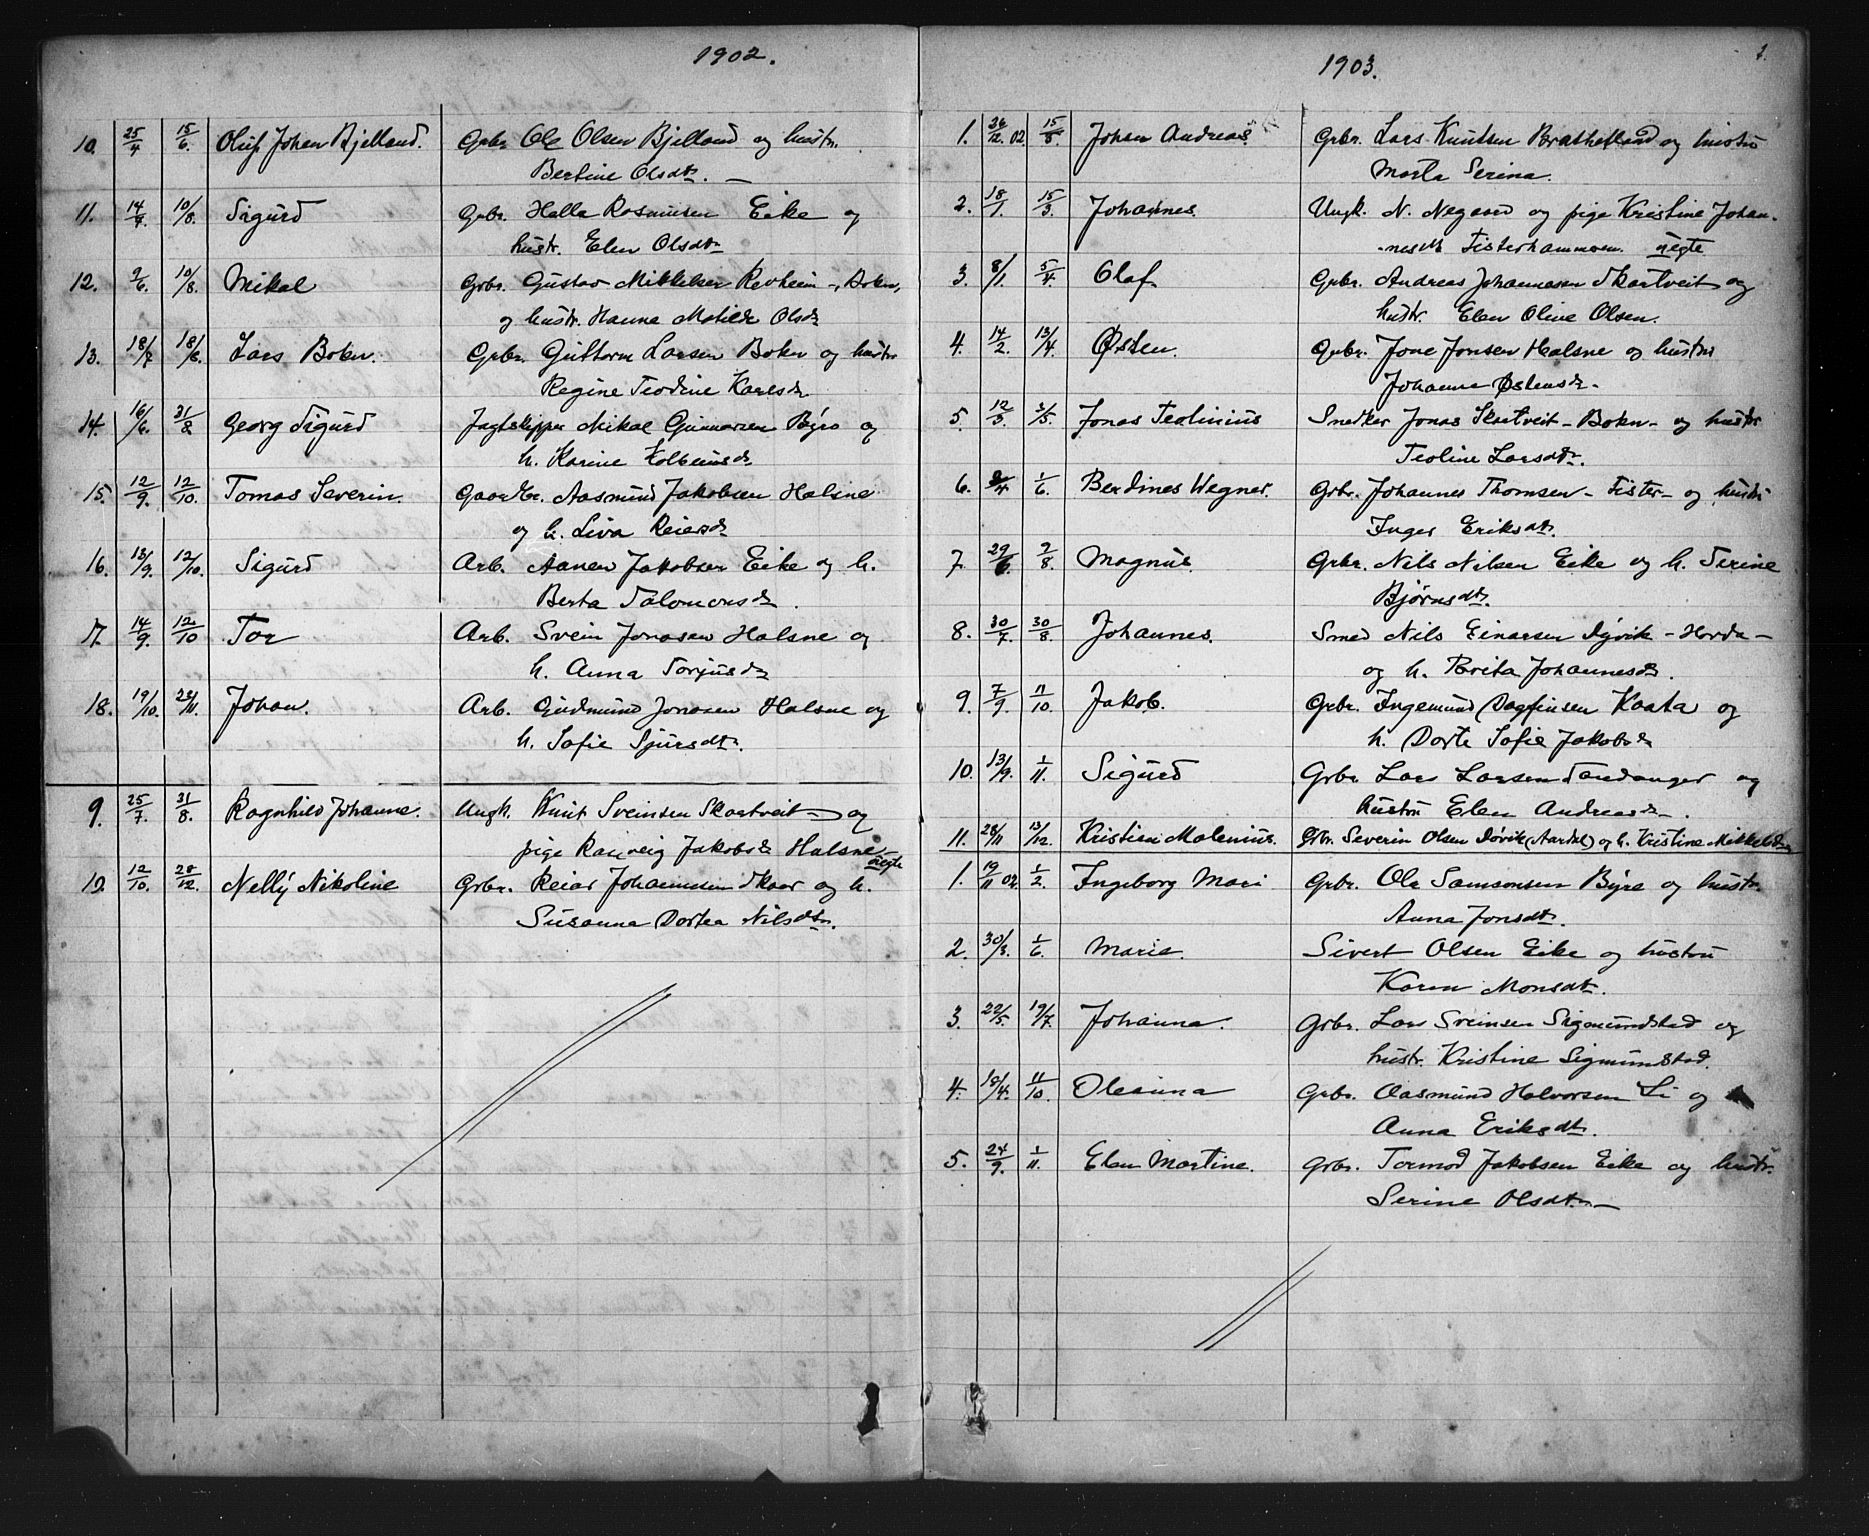 1902.
10. 25/4 15/6. Oluf Johan Bjelland. Grbr. Ole Olsen Bjelland og hustr.
Bertine Olsdtr. —
11. 14/4 10/8. Sigurd Grbr. Halle Rasmusen Eike og
hustr. Elen Olsdtr
12. 9/6. 10/8. Mikal Grbr. Gustav Mikkelsen Revheim -, Bokn,
og hustr. Hanna Matilde Olsdr
13. 18/7 18/8. Lars Bokn. Grbr. Guttorm Larsen Bokn og hustr
Regine Teodine Karlsdr
14. 16/6. 31/8 Georg Sigurd Jagtskipper Mikal Gunnarsen Byre og
h. Karine Kolbeinsdr
15. 12/9. 12/10. Tomas Severin. Gaardbr. Aasmund Jakobsen Halsne
og h. Siva Reiersdr
16. 13/9. 12/10. Sigurd Arb. Aanen Jakobsen Eike og h.
Berta Salomonsdr.
17. 14/9. 12/10 Tor Arb. Svein Jonasen Halsne og
h. Anna Torjusdr
18. 19/10. 23/11. Johan. Arb. Gudmund Jonasen Halsne og
h. Sofie Sjursdtr.
9. 25/7. 31/8. Ragnhild Johanne. Ungk. Knut Sveinsen Skartveit — og
pige Ranveig Jakobsdr Halsne —
uegte
10. 12/10. 28/12. Nelly Nikoline Grbr. Reiar Johannesen Skaar og h.
Susanna Dortea Nilsdtr.
1903.
1. 26/12. 02. 15/3. Johan Andreas Grbr. Lars Knutsen Brathetland og hustru
Marta Serina.
2. 18/1. 15/3. Johannes. Ungk. N. Negaard og pige Kristine Johan-
nesdtr Fisterhammeren. uegte
3. 8/1. 5/4. Olaf Grbr. Andreas Johannesen Skartveit og
hustr. Elen Oline Olsen.
4. 14/2. 13/4. Østen. Grbr. Jone Jonsen Halsne og hustru
Johanna Østensdr.
5. 12/3. 3/5. Jonas Teolinius Snedker Jonas Skartveit - Bokn - og hustr
Teoline Larsdtr.
6. 2/4 1/6. Berdines Wegner. Grbr. Johannes Thomsen - Fister - og hustr
Inger Eriksdtr.
7. 29/6. 9/8. Magnus. Grbr. Nils Nilsen Eike og h. Serine
Bjørnsdtr.
8. 30/7. 30/8. Johannes. Smed Nils Einarsen Dyvik - Horda -
og h. Brita Johannesdr.
9. 7/9. 11/10. Jakob. Grbr. Ingemund Dagfinsen Kaata og
h. Dorte Sofie Jakobsdr
10. 13/9. 1/11. Sigurd Grbr. Lars Larsen Sandanger og
hustru Elen Andreasdr.
11. 28/11 13/12. Kristian Malenius. Grbr. Severin Olsen Døvik (Aardal) og h. Kristine Mikkelsdr
1. 19/11 02. 1/2. Ingeborg Mari Grbr. Ole Samsonsen Byre og hustr.
Anna Jonsdtr.
2. 30/3. 1/6. Marie. Sivert Olsen Eike og hustru
Karen Monsdtr.
3. 22/5. 19/7. Johanna. Grbr. Lars Sveinsen Sigmundstad og
hustr. Kristine Sigmundstad.
4. 18/4. 11/10. Oleanna Grbr. Aasmund Halvorsen Li og
Anna Eriksdtr.
5. 24/9. 1/11. Elen Martine. Grbr. Tormod Jakobsen Eike og hustr.
Serine Olsdtr. —